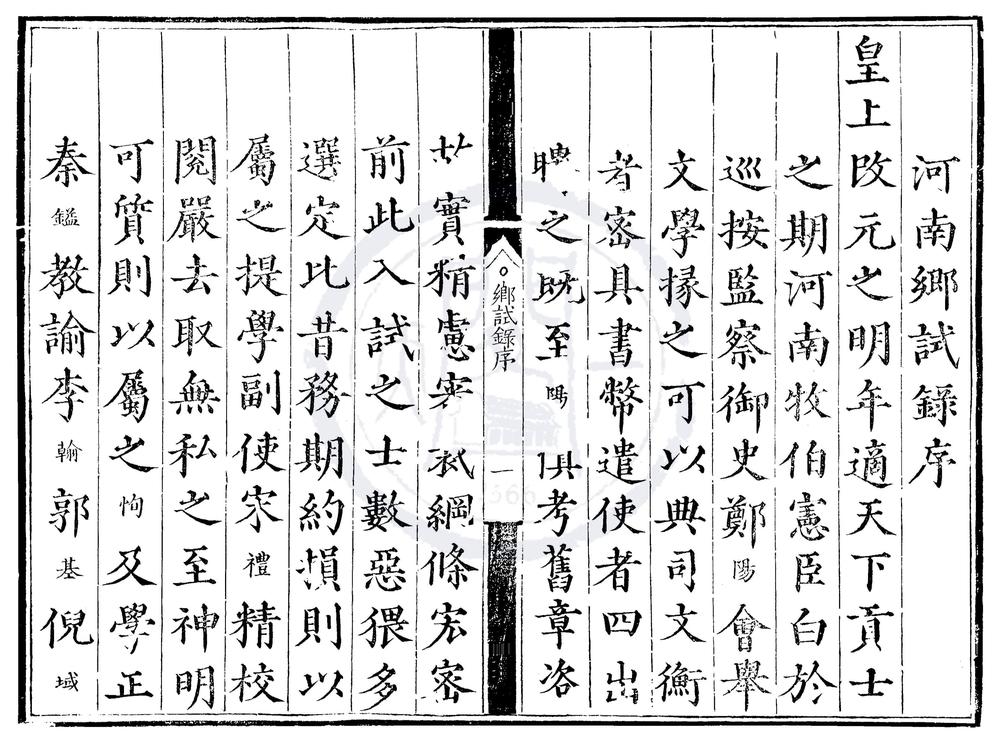 河南鄉試錄序
皇上改元之明年適天下貢士
之期河南牧伯憲臣白於
巡按監察御史鄭陽會舉
文學掾之可以典司文衡
者密具書幣遣使者四出
聘之既至陽俱考舊章咨
鄉試錄序
一
實精慮寀綱條宏密
前此入試之士數惡猥多
選定比昔務期約損則以
屬之提學副使宋禮精校
閱嚴去取無私之至神明
可質則以屬之恂及學正
秦鎰教諭李翰郭基倪域